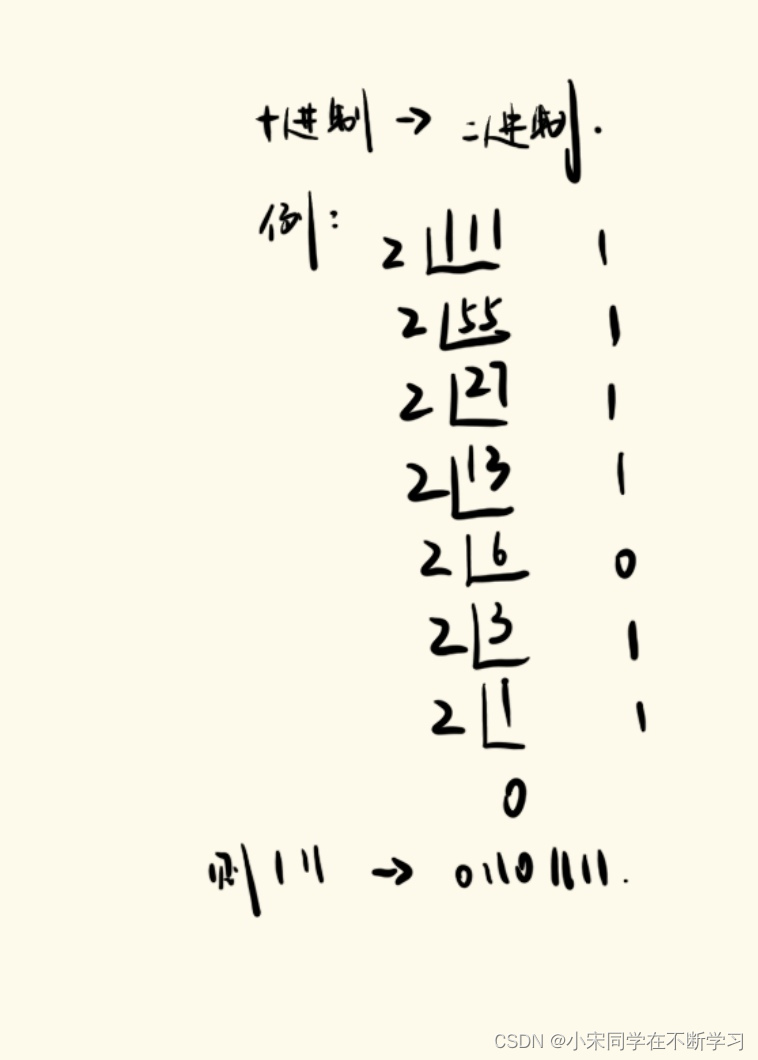 十进制 → 二进制.
例: 2 111 1
2 55 1
2 27 1
2 13 1
2 6 0
2 3 1
2 1 1
0
则 111 → 01101111.
CSDN @小宋同学在不断学习